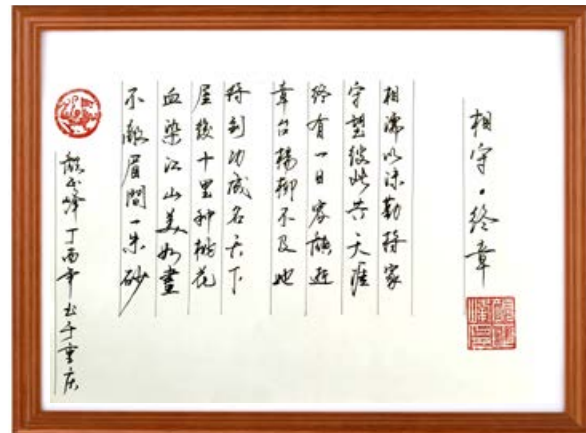 相守·终章
相濡以沫勤持家
守望彼此共天涯
终有一日容颜逝
章台杨柳不及她
待到功成名天下
屋后十里种桃花
血染江山美如画
不敌眉间一朱砂
丁酉年书于重庆